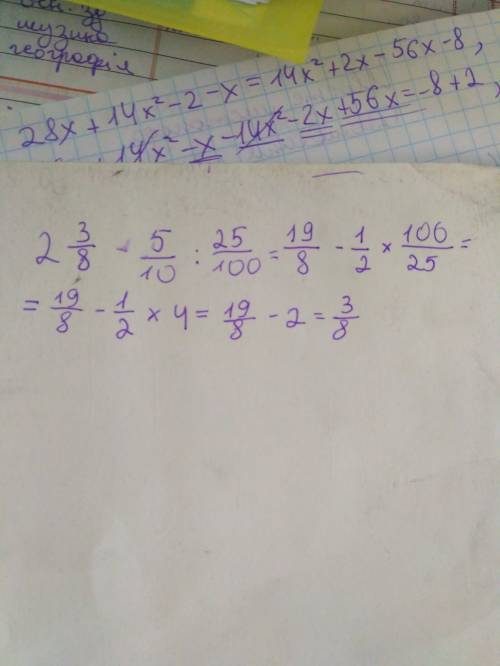 музика
географія
28x + 14x² - 2 - x = 14x² + 2x - 56x - 8,
14x² - x - 14x² - 2x + 56x = -8 + 2,
2 3/8 - 5/10 : 25/100 = 19/8 - 1/2 × 100/25 =
= 19/8 - 1/2 × 4 = 19/8 - 2 = 3/8